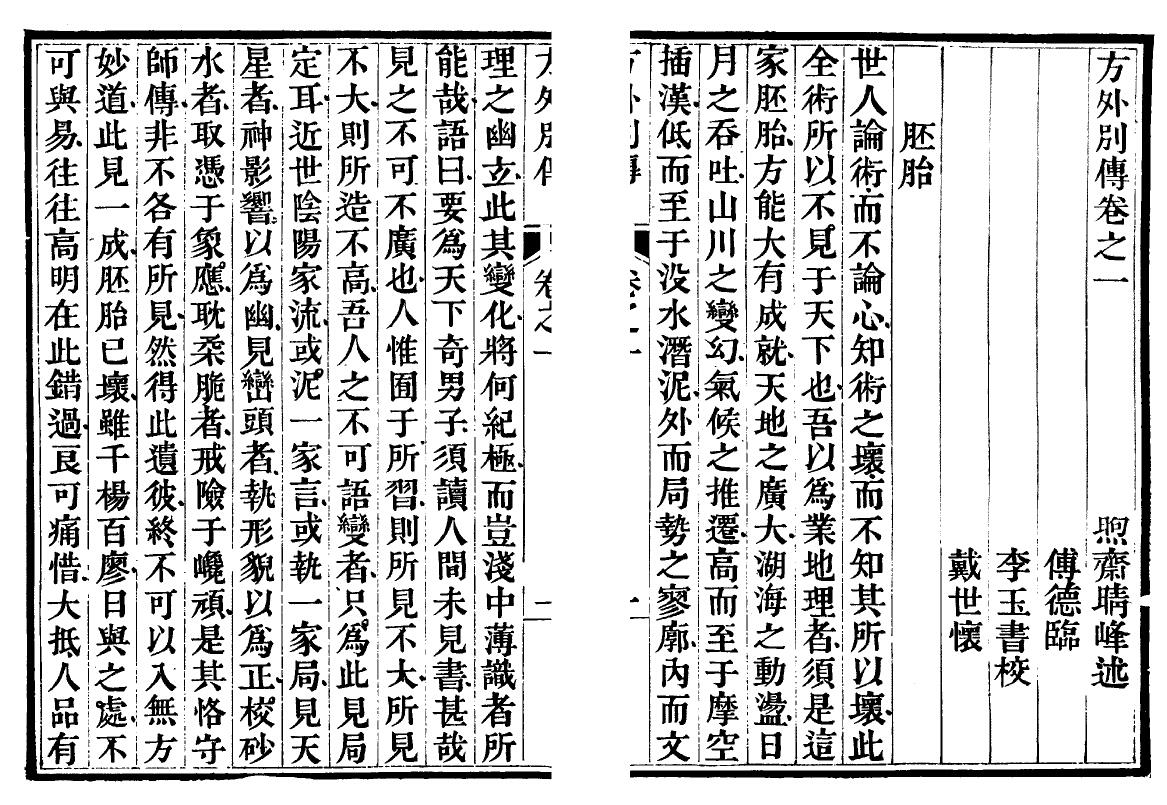 方外別傳卷之一
煦齋晴峰述
傅德臨
李玉書校
戴世懷
胚胎
世人論術而不論心知術之壞而不知其所以壞此
全術所以不見于天下也吾以為業地理者須是這
家胚胎方能大有成就天地之廣大湖海之動盪日
月之吞吐山川之變幻氣候之推遷高而至于摩空
插漢低而至于没水潛泥外而局勢之寥廓內而文
方外別傳
卷之一
一
方外別傳
卷之一
二
理之幽玄此其變化將何紀極而豈淺中薄識者所
能哉語曰要為天下奇男子須讀人間未見書甚哉
見之不可不廣也人惟囿于所習則所見不大所見
不大則所造不高吾人之不可語變者只為此見局
定耳近世陰陽家流或泥一家言或執一家局見天
星者神影響以為幽見巒頭者執形貌以為正梭砂
水者取憑于象應耽柔脆者戒險于巉頑是其恪守
師傳非不各有所見然得此遺彼終不可以入無方
妙道此見一成胚胎已壞雖千楊百廖日與之處不
可與易往往高明在此錯過良可痛惜大抵人品有